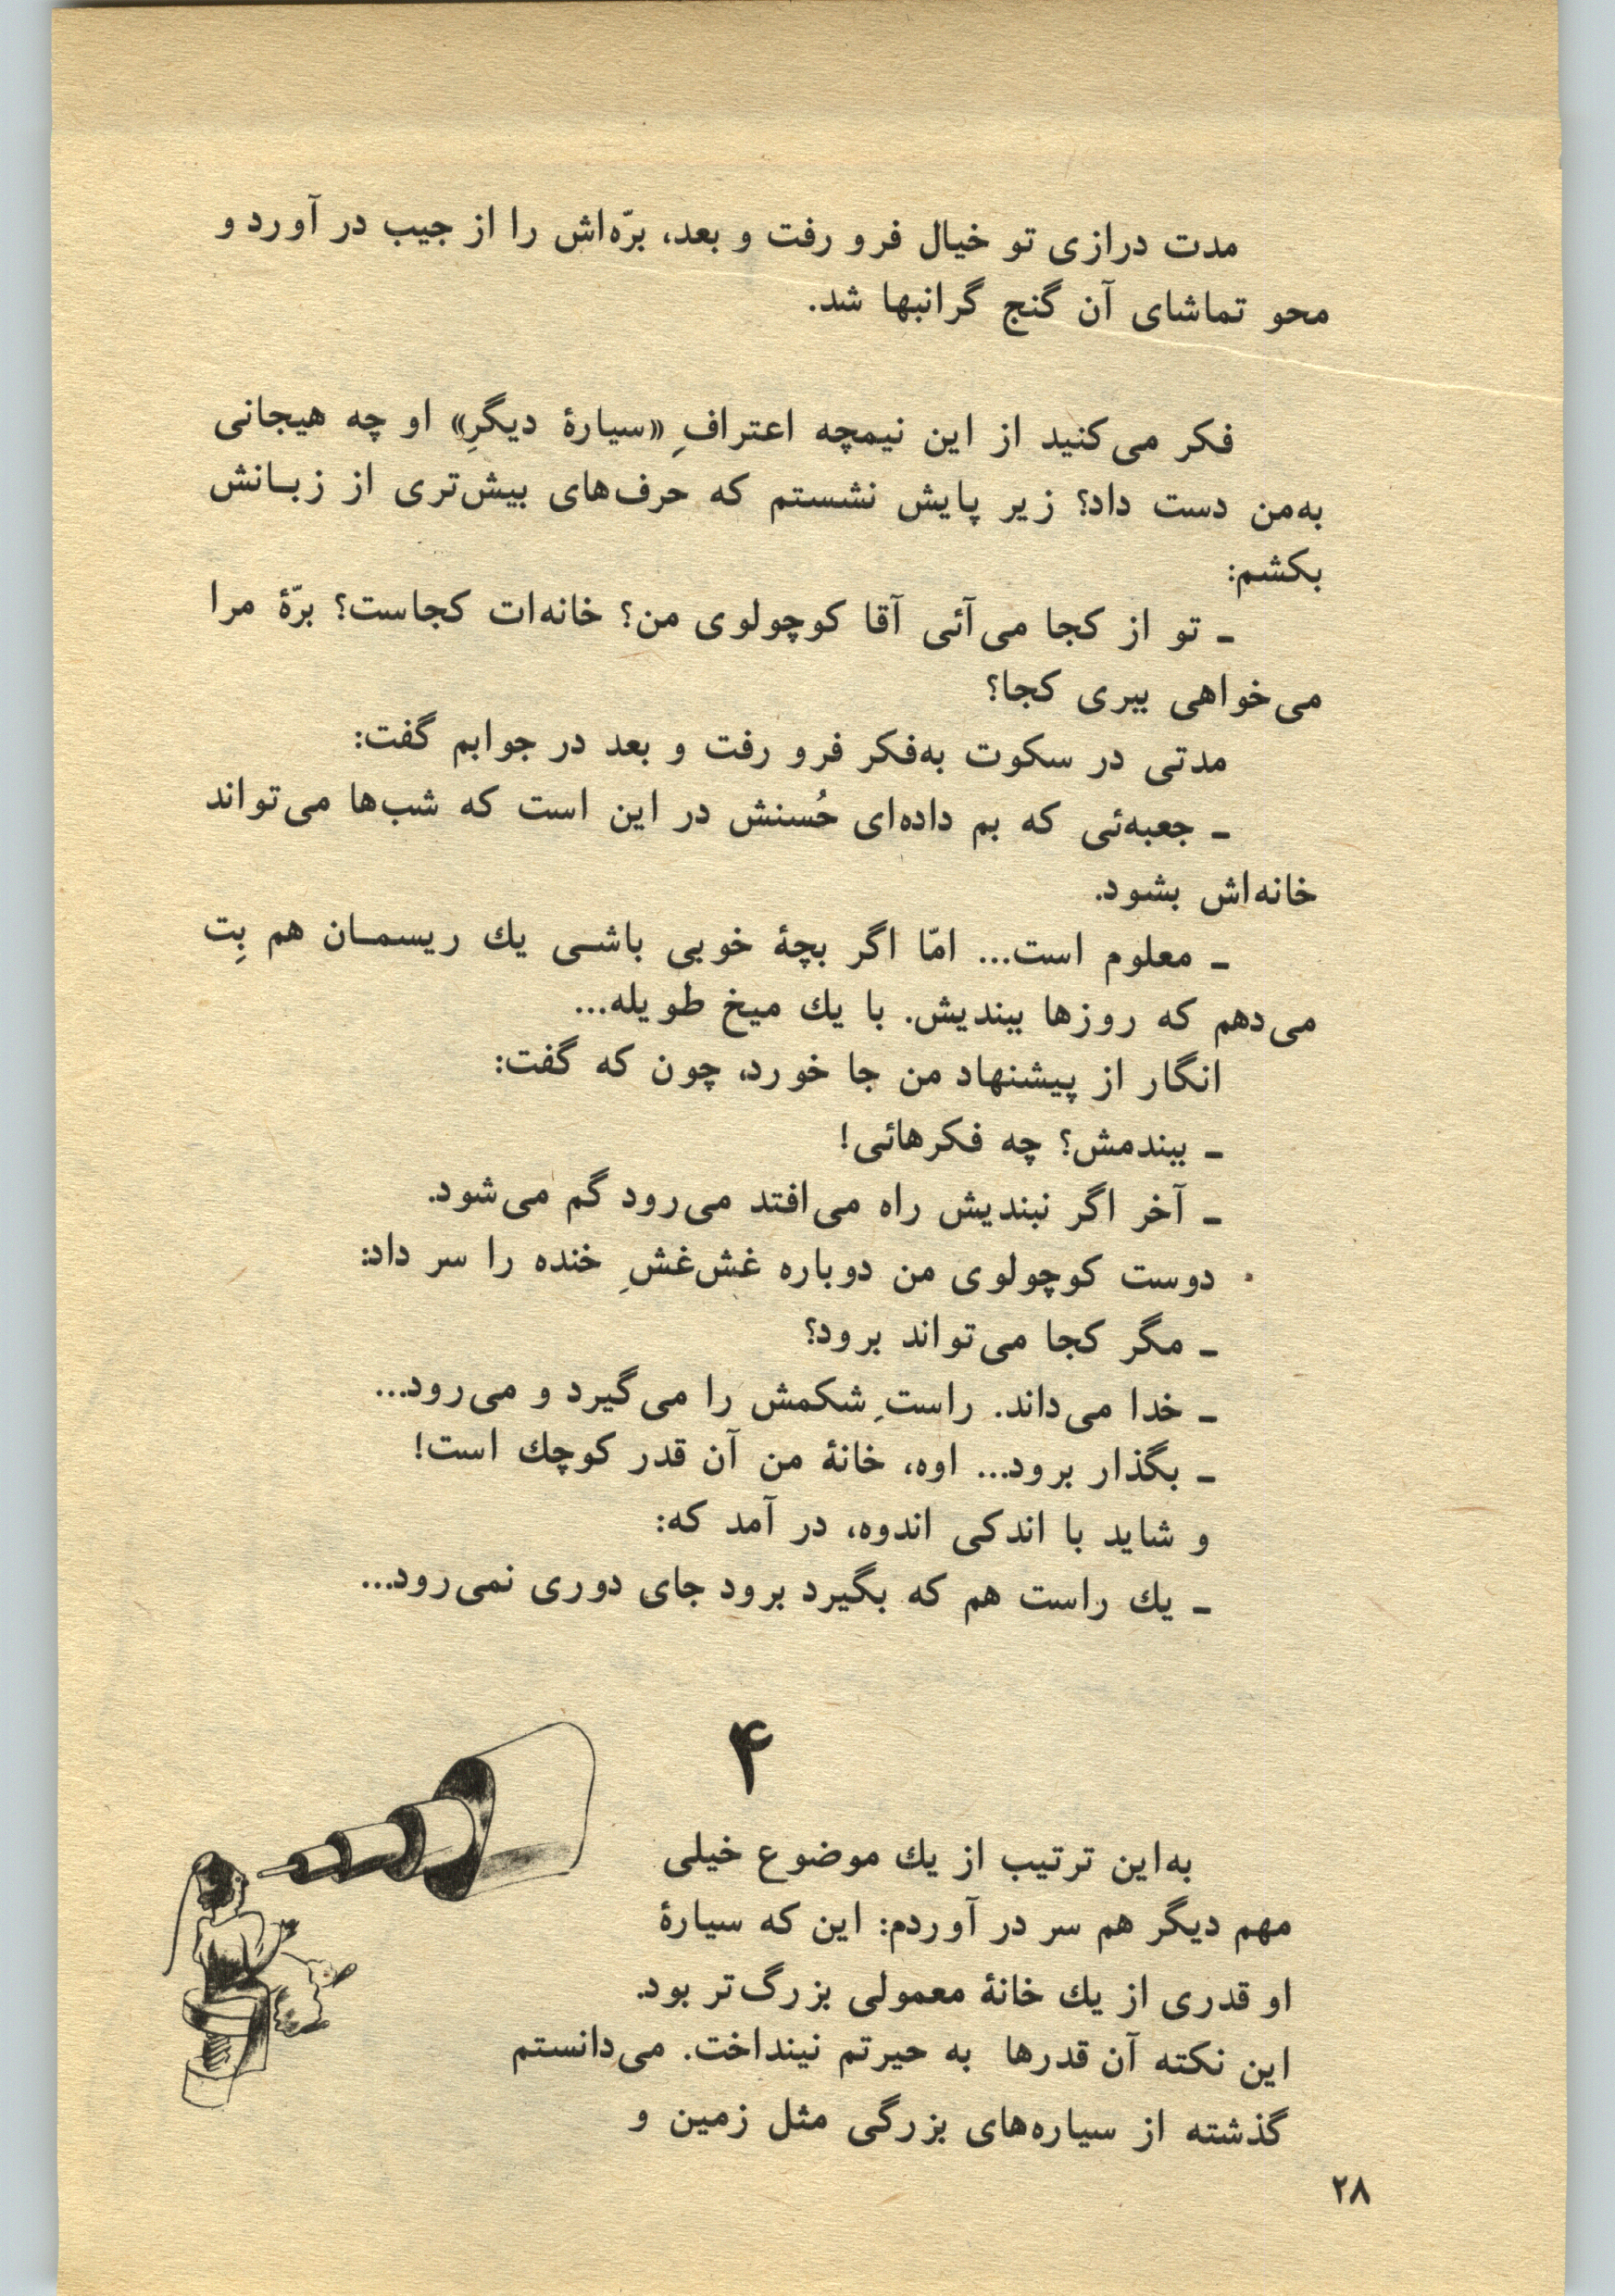 مدت درازی تو خیال فرو رفت و بعد، برّه‌اش را از جیب در آورد و
محو تماشای آن گنج گرانبها شد.
فکر می‌کنید از این نیمچه اعترافِ «سیارهٔ دیگرِ» او چه هیجانی
به‌من دست داد؟ زیر پایش نشستم که حرف‌های بیش‌تری از زبـانش
بکشم:
ـ تو از کجا می‌آئی آقا کوچولوی من؟ خانه‌ات کجاست؟ برّهٔ مرا
می‌خواهی ببری کجا؟
مدتی در سکوت به‌فکر فرو رفت و بعد در جوابم گفت:
ـ جعبه‌ئی که بم داده‌ای حُسنش در این است که شب‌ها می‌تواند
خانه‌اش بشود.
ـ معلوم است... امّا اگر بچهٔ خوبی باشـی یك ریسمـان هم بِت
می‌دهم که روزها ببندیش. با یك میخ طویله...
انگار از پیشنهاد من جا خورد، چون که گفت:
ـ ببندمش؟ چه فکرهائی!
ـ آخر اگر نبندیش راه می‌افتد می‌رود گم می‌شود.
دوست کوچولوی من دوباره غش‌غشِ خنده را سر داد:
ـ مگر کجا می‌تواند برود؟
ـ خدا می‌داند. راستِ شکمش را می‌گیرد و می‌رود...
ـ بگذار برود... اوه، خانهٔ من آن قدر کوچك است!
و شاید با اندکی اندوه، در آمد که:
ـ یك راست هم که بگیرد برود جای دوری نمی‌رود...
۴
به‌این ترتیب از یك موضوع خیلی
مهم دیگر هم سر در آوردم: این که سیارهٔ
او قدری از یك خانهٔ معمولی بزرگ‌تر بود.
این نکته آن قدرها به حیرتم نینداخت. می‌دانستم
گذشته از سیاره‌های بزرگی مثل زمین و
۲۸